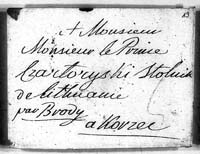 A Monsieur
Monsieur le Prince
Czartoryski Stolnik
de Lithuanie
par Brody
à Korzec